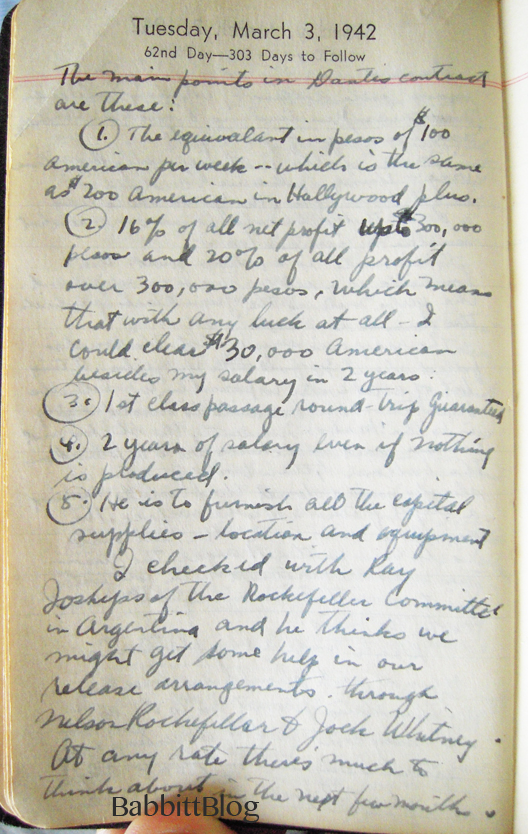 Tuesday, March 3, 1942
62nd Day—303 Days to Follow
The main points in Dantes contract
are these:
1. The equivalant in pesos of $100
American per week -- which is the same
as $200 American in Hollywood plus.
2. 16% of all net profit upto $300,000
pesos and 20% of all profit
over 300,000 pesos, which means
that with any luck at all - I
could clear $30,000 American
besides my salary in 2 years.
3. 1st class passage round-trip Guaranteed
4. 2 years of salary even if nothing
is produced.
5. He is to furnish all the capital
supplies - location and equipment
I checked with Ray
of the Rockefeller Committee
in Argentina and he thinks we
might get some help in our
release arrangements. through
Nelson Rockefellar & Jock Whitney.
At any rate there's much to
think about in the next few months.
BabbittBlog